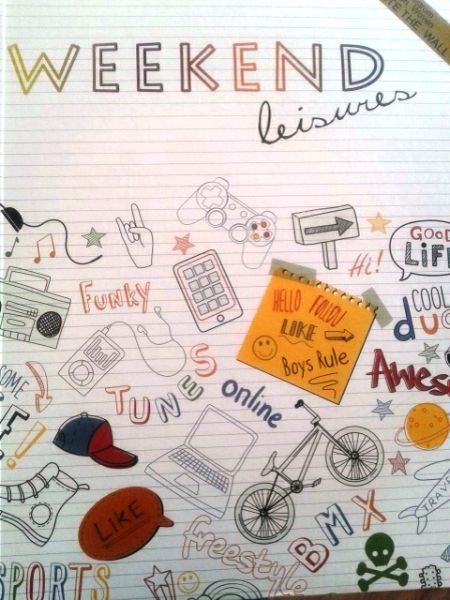 THE WALL
WEEKEND
leisures
GOOD
LiF
Hi!
FUNKY
HELLO FOLIO!
LIKE
Boys Rule
COOL
du
AWES
OME
TUNES
online
LIKE
BMX
freestyle
TRAVE
SPORTS